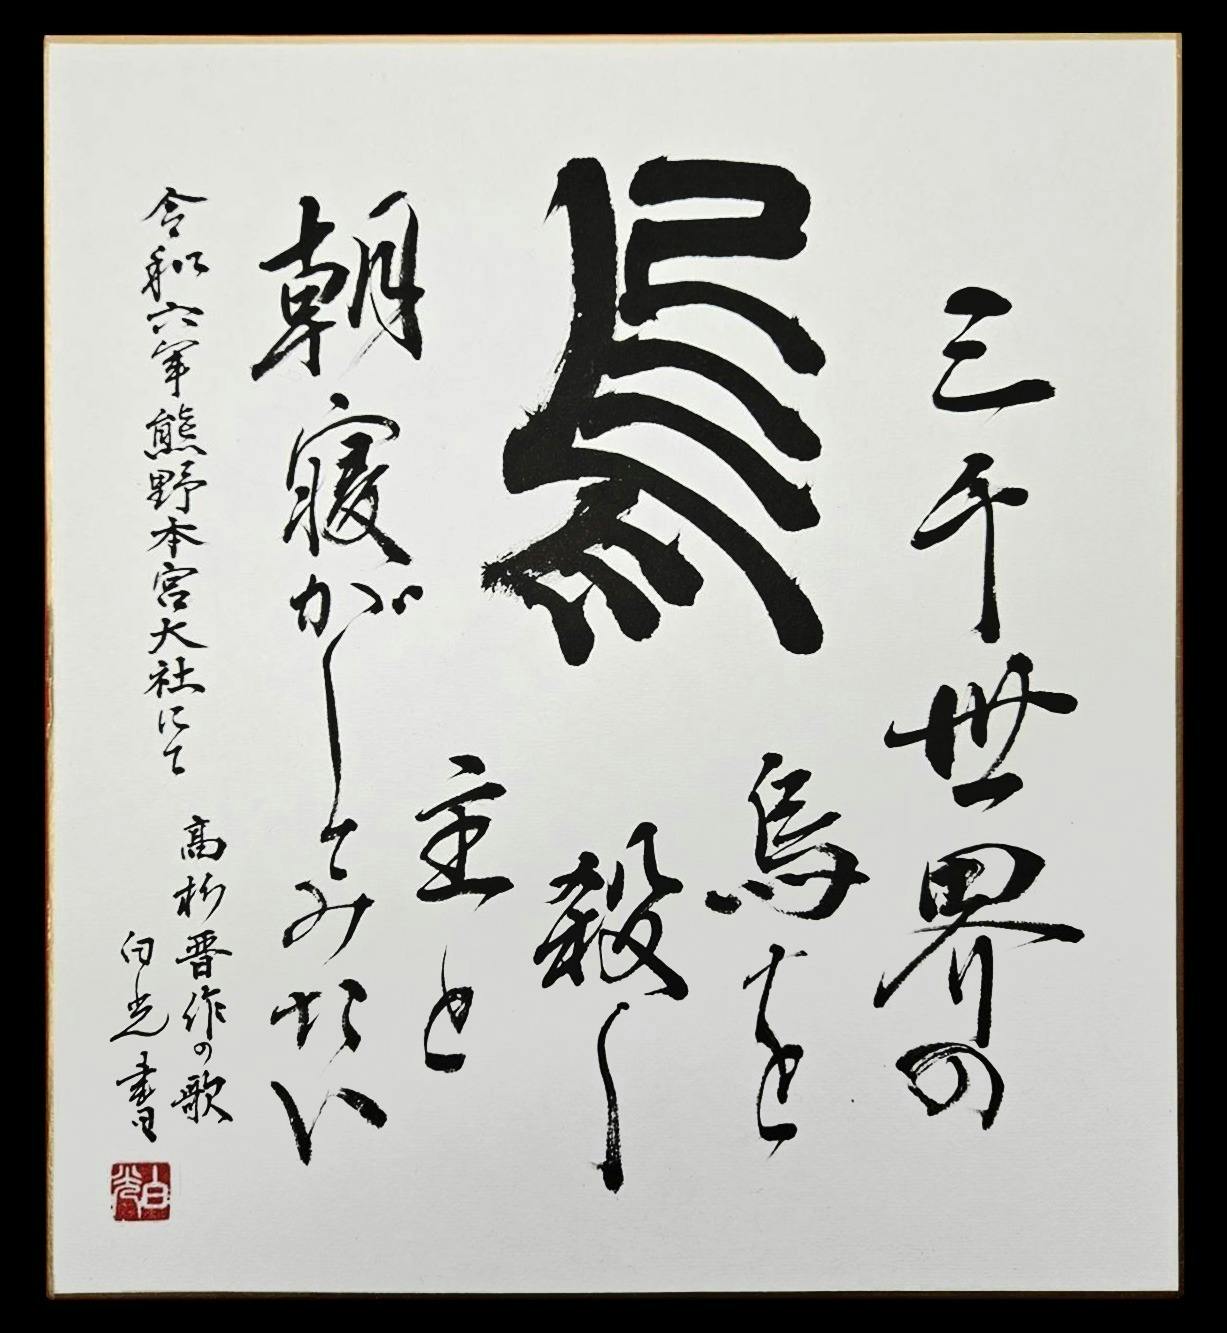 三千世界の
烏
烏を
殺し
主と
朝寝がしてみたい
令和六年熊野本宮大社にて
高杉晋作の歌
白光書
白光